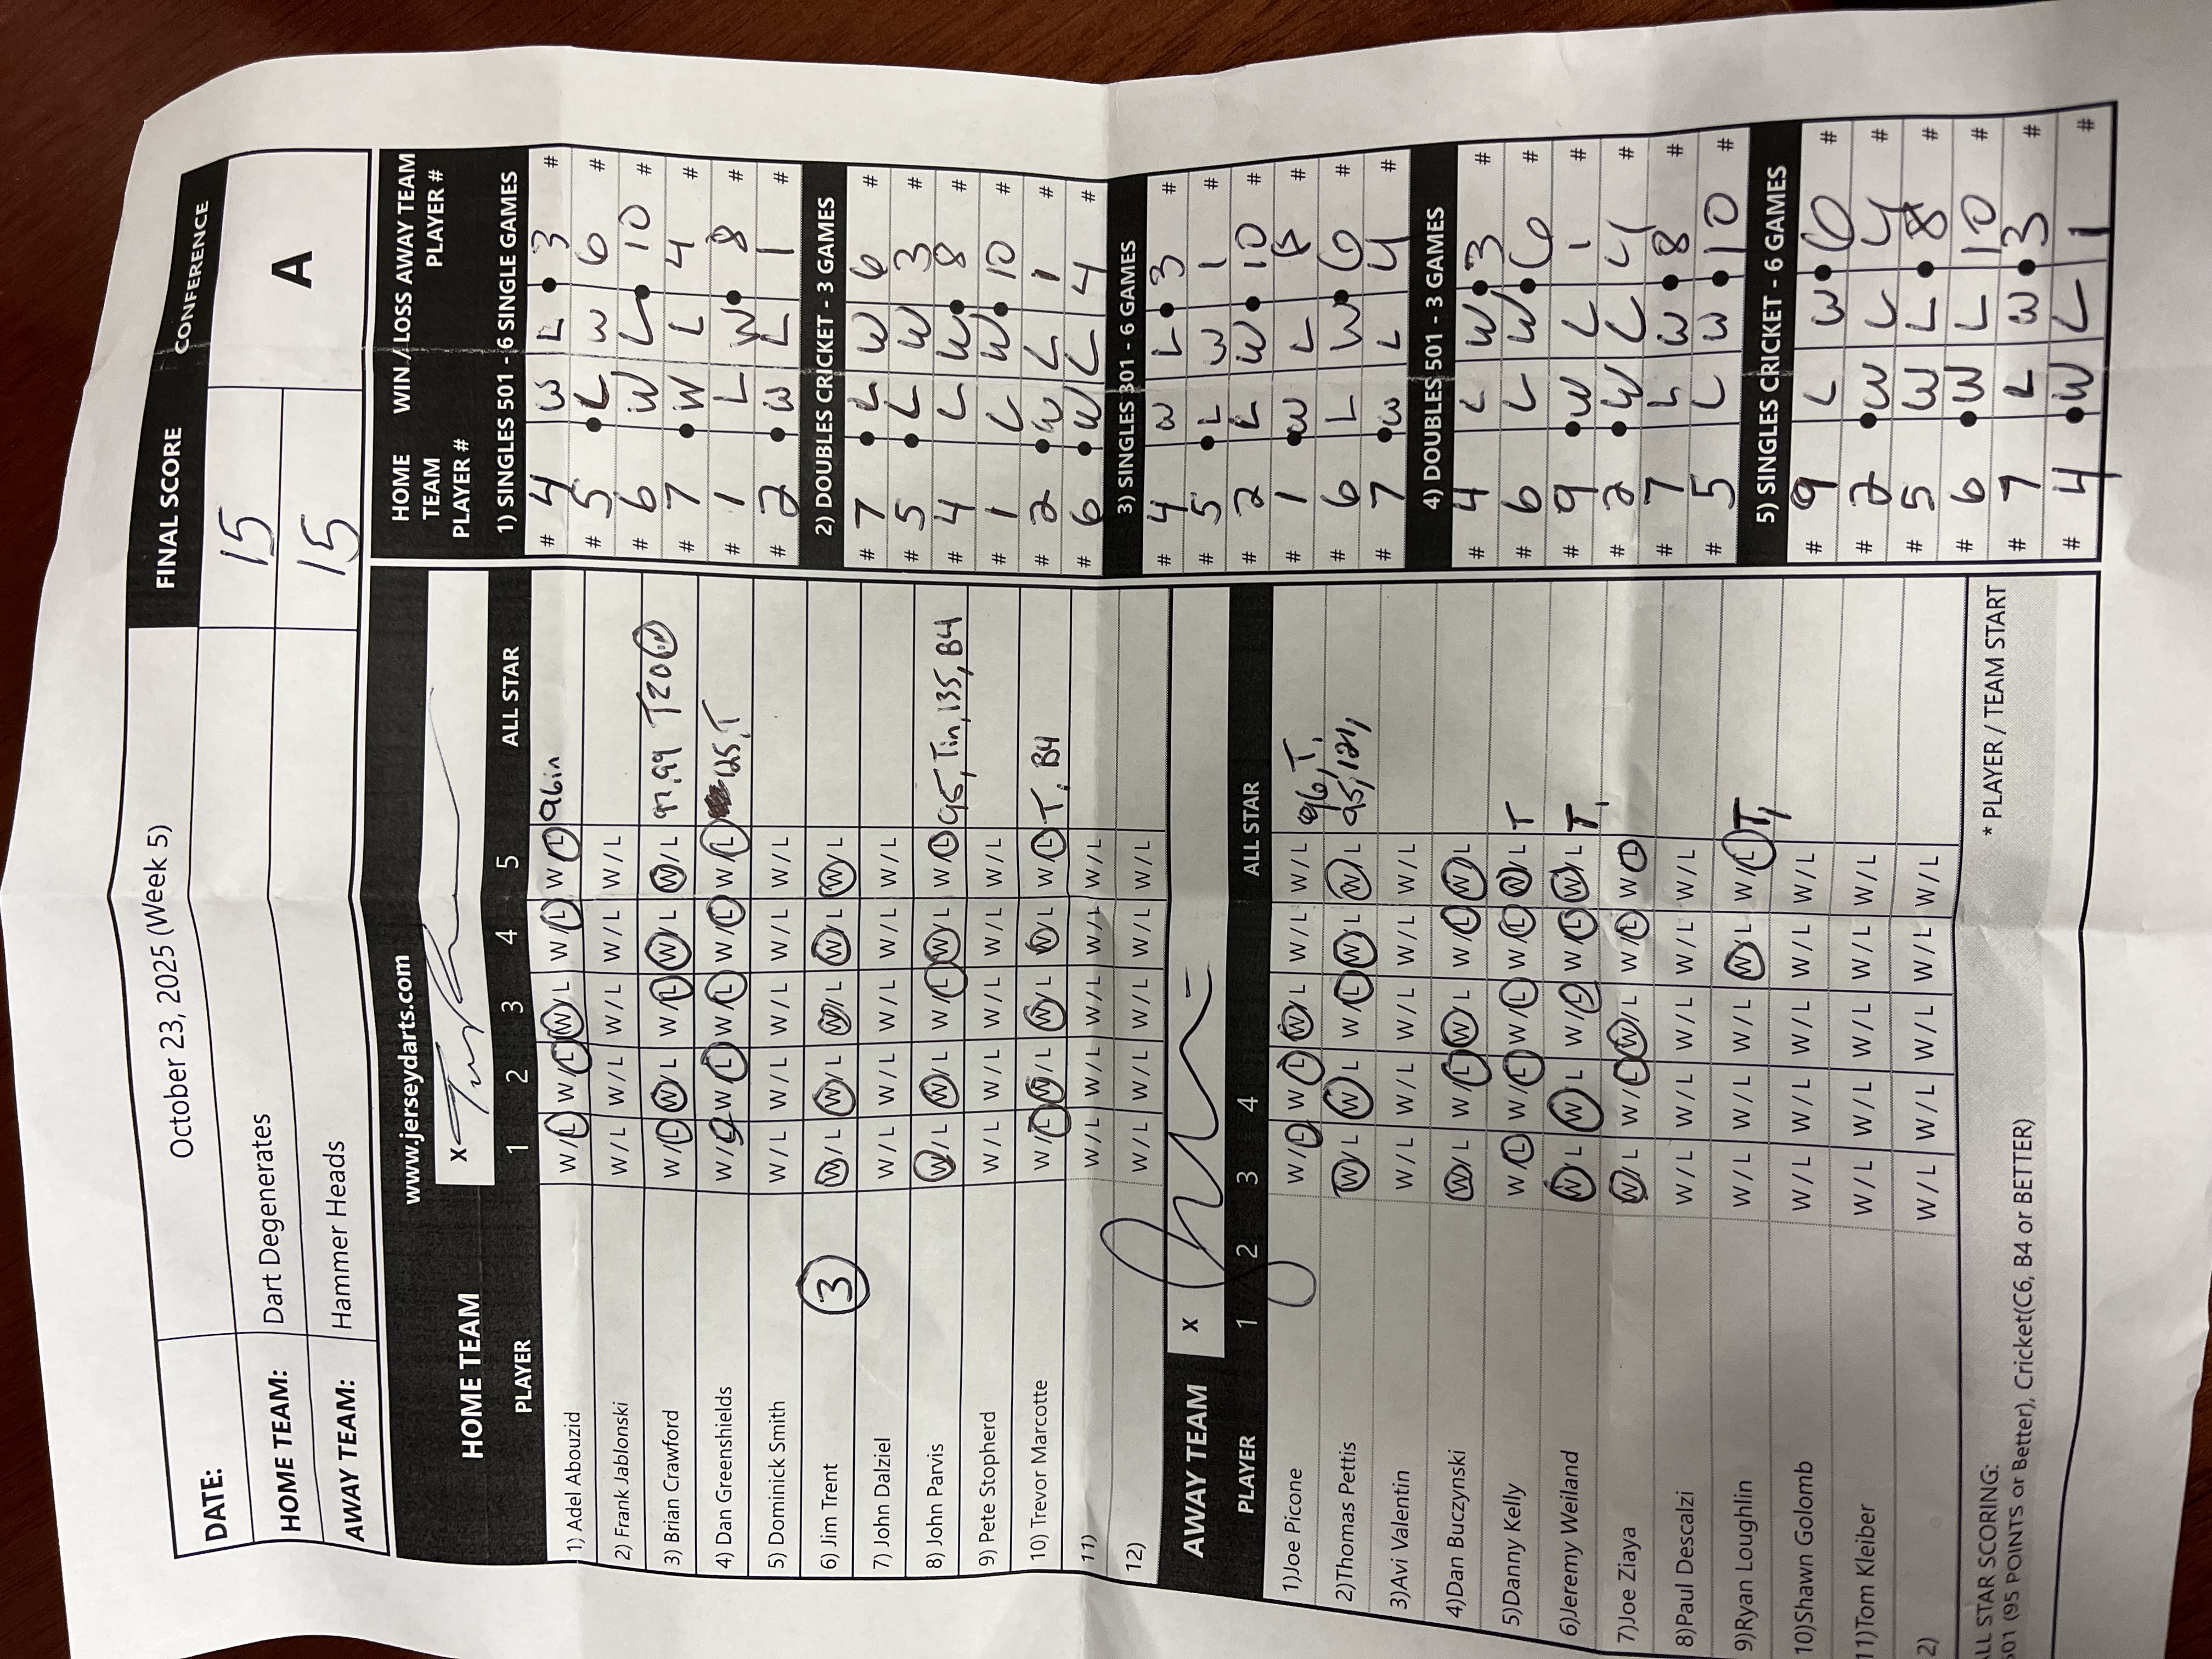 DATE: October 23, 2025 (Week 5) FINAL SCORE CONFERENCE
HOME TEAM: Dart Degenerates 15 A
AWAY TEAM: Hammer Heads 15
HOME TEAM www.jerseydarts.com
x
PLAYER 1 2 3 4 5 ALL STAR
1) Adel Abouzid W / L W / L W / L W / L W / L 96in
2) Frank Jablonski W / L W / L W / L W / L W / L
3) Brian Crawford W / L W / L W / L W / L W / L 97,99 T20
4) Dan Greenshields W / L W / L W / L W / L W / L 125,T
5) Dominick Smith W / L W / L W / L W / L W / L
6) Jim Trent 3 W / L W / L W / L W / L W / L
7) John Dalziel W / L W / L W / L W / L W / L
8) John Parvis W / L W / L W / L W / L W / L 95, Tin, 135, B4
9) Pete Stopherd W / L W / L W / L W / L W / L
10) Trevor Marcotte W / L W / L W / L W / L W / L T, B4
11) W / L W / L W / L W / L W / L
12) W / L W / L W / L W / L W / L
AWAY TEAM x
PLAYER 1 2 3 4 ALL STAR
1)Joe Picone W / L W / L W / L W / L W / L 96, T,
2)Thomas Pettis W / L W / L W / L W / L W / L 95, 121,
3)Avi Valentin W / L W / L W / L W / L W / L
4)Dan Buczynski W / L W / L W / L W / L W / L
5)Danny Kelly W / L W / L W / L W / L W / L T
6)Jeremy Weiland W / L W / L W / L W / L W / L T,
7)Joe Ziaya W / L W / L W / L W / L W / L
8)Paul Descalzi W / L W / L W / L W / L W / L
9)Ryan Loughlin W / L W / L W / L W / L W / L T,
10)Shawn Golomb W / L W / L W / L W / L W / L
11)Tom Kleiber W / L W / L W / L W / L W / L
2) W / L W / L W / L W / L W / L
ALL STAR SCORING: * PLAYER / TEAM START
501 (95 POINTS or Better), Cricket(C6, B4 or BETTER)
HOME TEAM PLAYER # WIN / LOSS AWAY TEAM PLAYER #
1) SINGLES 501 - 6 SINGLE GAMES
# 4 W L 3 #
# 5 L W 6 #
# 6 W L 10 #
# 7 W L 4 #
# 1 L W 8 #
# 2 W L 1 #
2) DOUBLES CRICKET - 3 GAMES
# 7 L W 6 #
# 5 L W 3 #
# 4 L W 8 #
# 1 L W 10 #
# 2 W L 1 #
# 6 W L 4 #
3) SINGLES 301 - 6 GAMES
# 4 W L 3 #
# 5 L W 1 #
# 2 L W 10 #
# 1 W L 8 #
# 6 L W 6 #
# 7 W L 4 #
4) DOUBLES 501 - 3 GAMES
# 4 L W 3 #
# 6 L W 6 #
# 9 W L 1 #
# 2 W L 4 #
# 7 L W 8 #
# 5 L W 10 #
5) SINGLES CRICKET - 6 GAMES
# 9 L W 6 #
# 2 W L 4 #
# 5 W L 8 #
# 6 W L 10 #
# 7 L W 3 #
# 4 W L 1 #